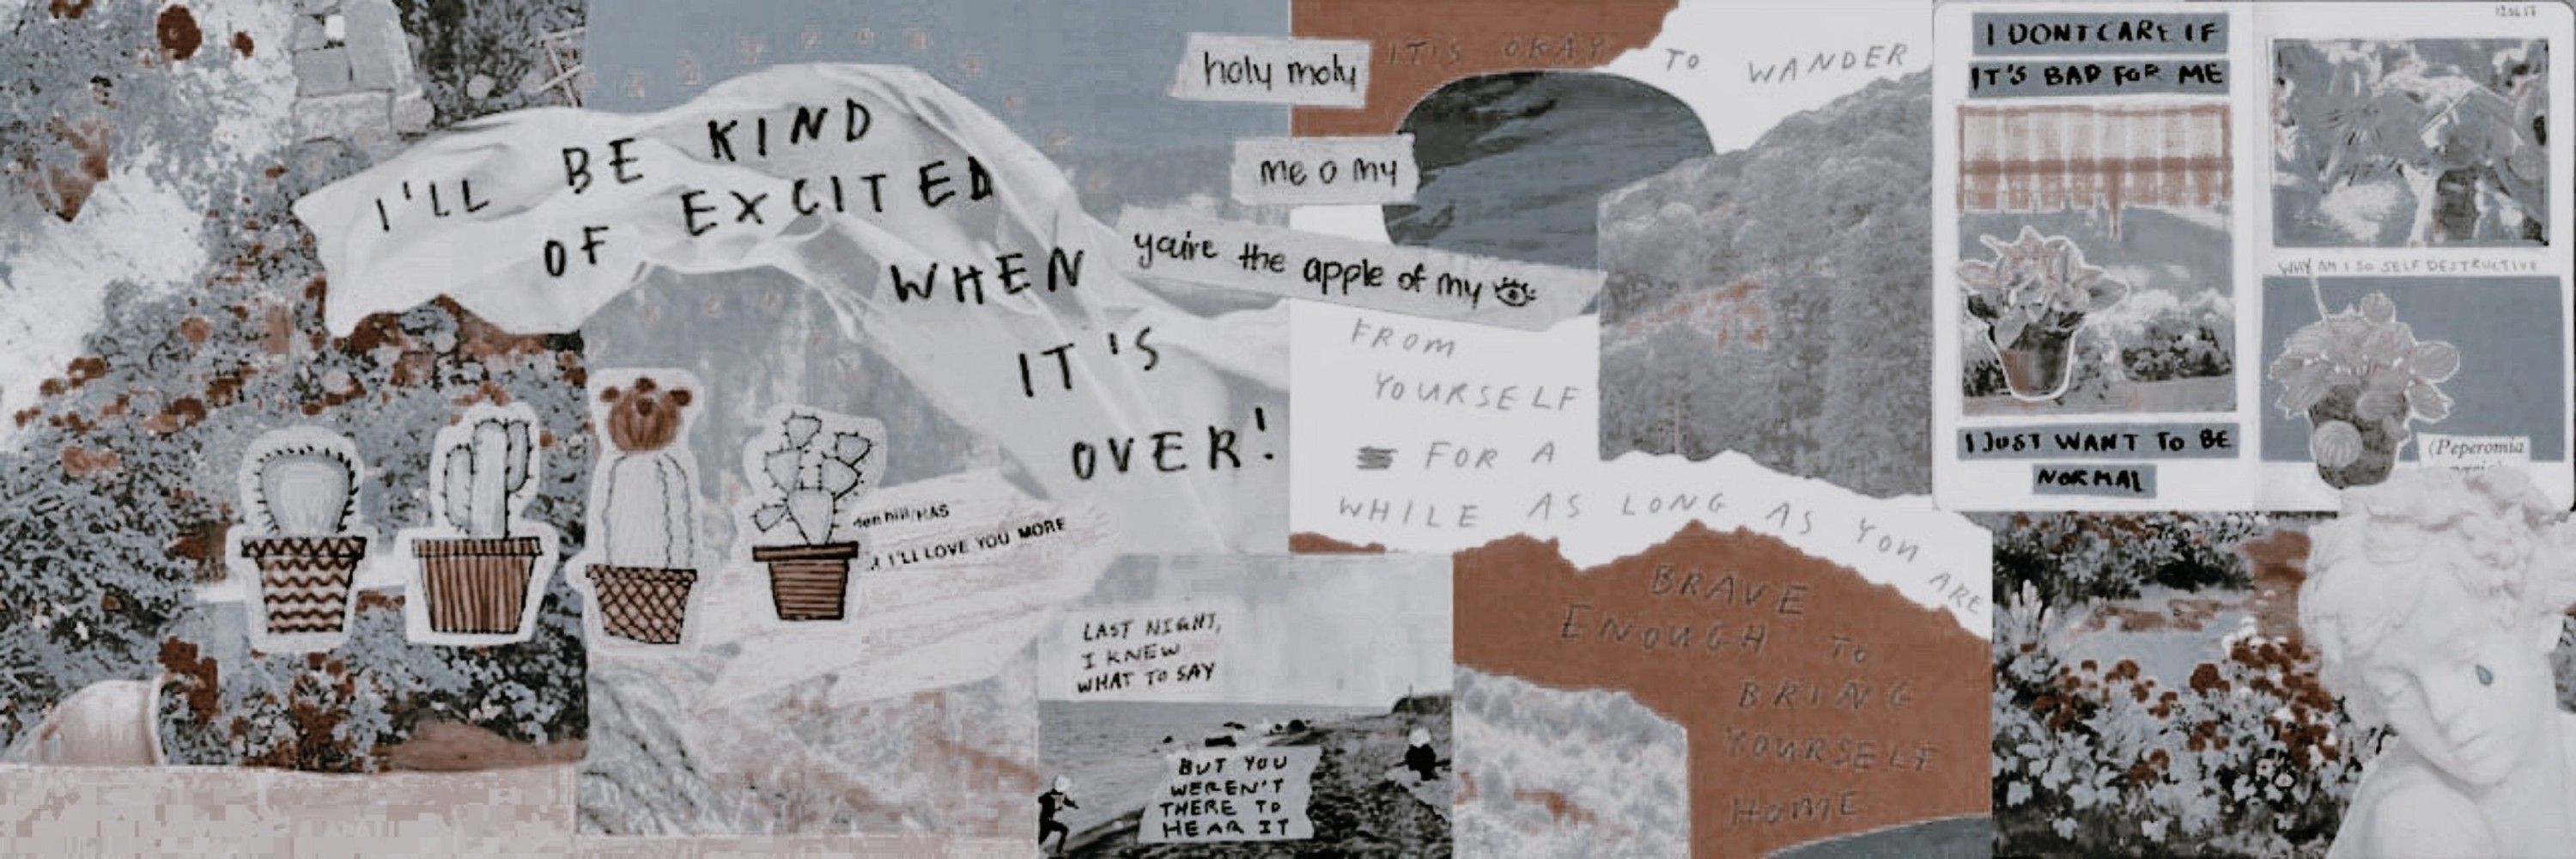 I'LL BE KIND
OF EXCITED
WHEN
IT'S
OVER!
holy moly
me o my
you're the apple of my
IT'S OKAY TO WANDER
FROM
YOURSELF
FOR A
WHILE AS LONG AS YOU ARE
BRAVE
ENOUGH TO
BRING
YOURSELF
HOME
I DONT CARE IF
IT'S BAD FOR ME
I JUST WANT TO BE
NORMAL
WHY AM I SO SELF DESTRUCTIVE
(Peperomia
I'LL LOVE YOU MORE
LAST NIGHT,
I KNEW
WHAT TO SAY
BUT YOU
WEREN'T
THERE TO
HEAR IT